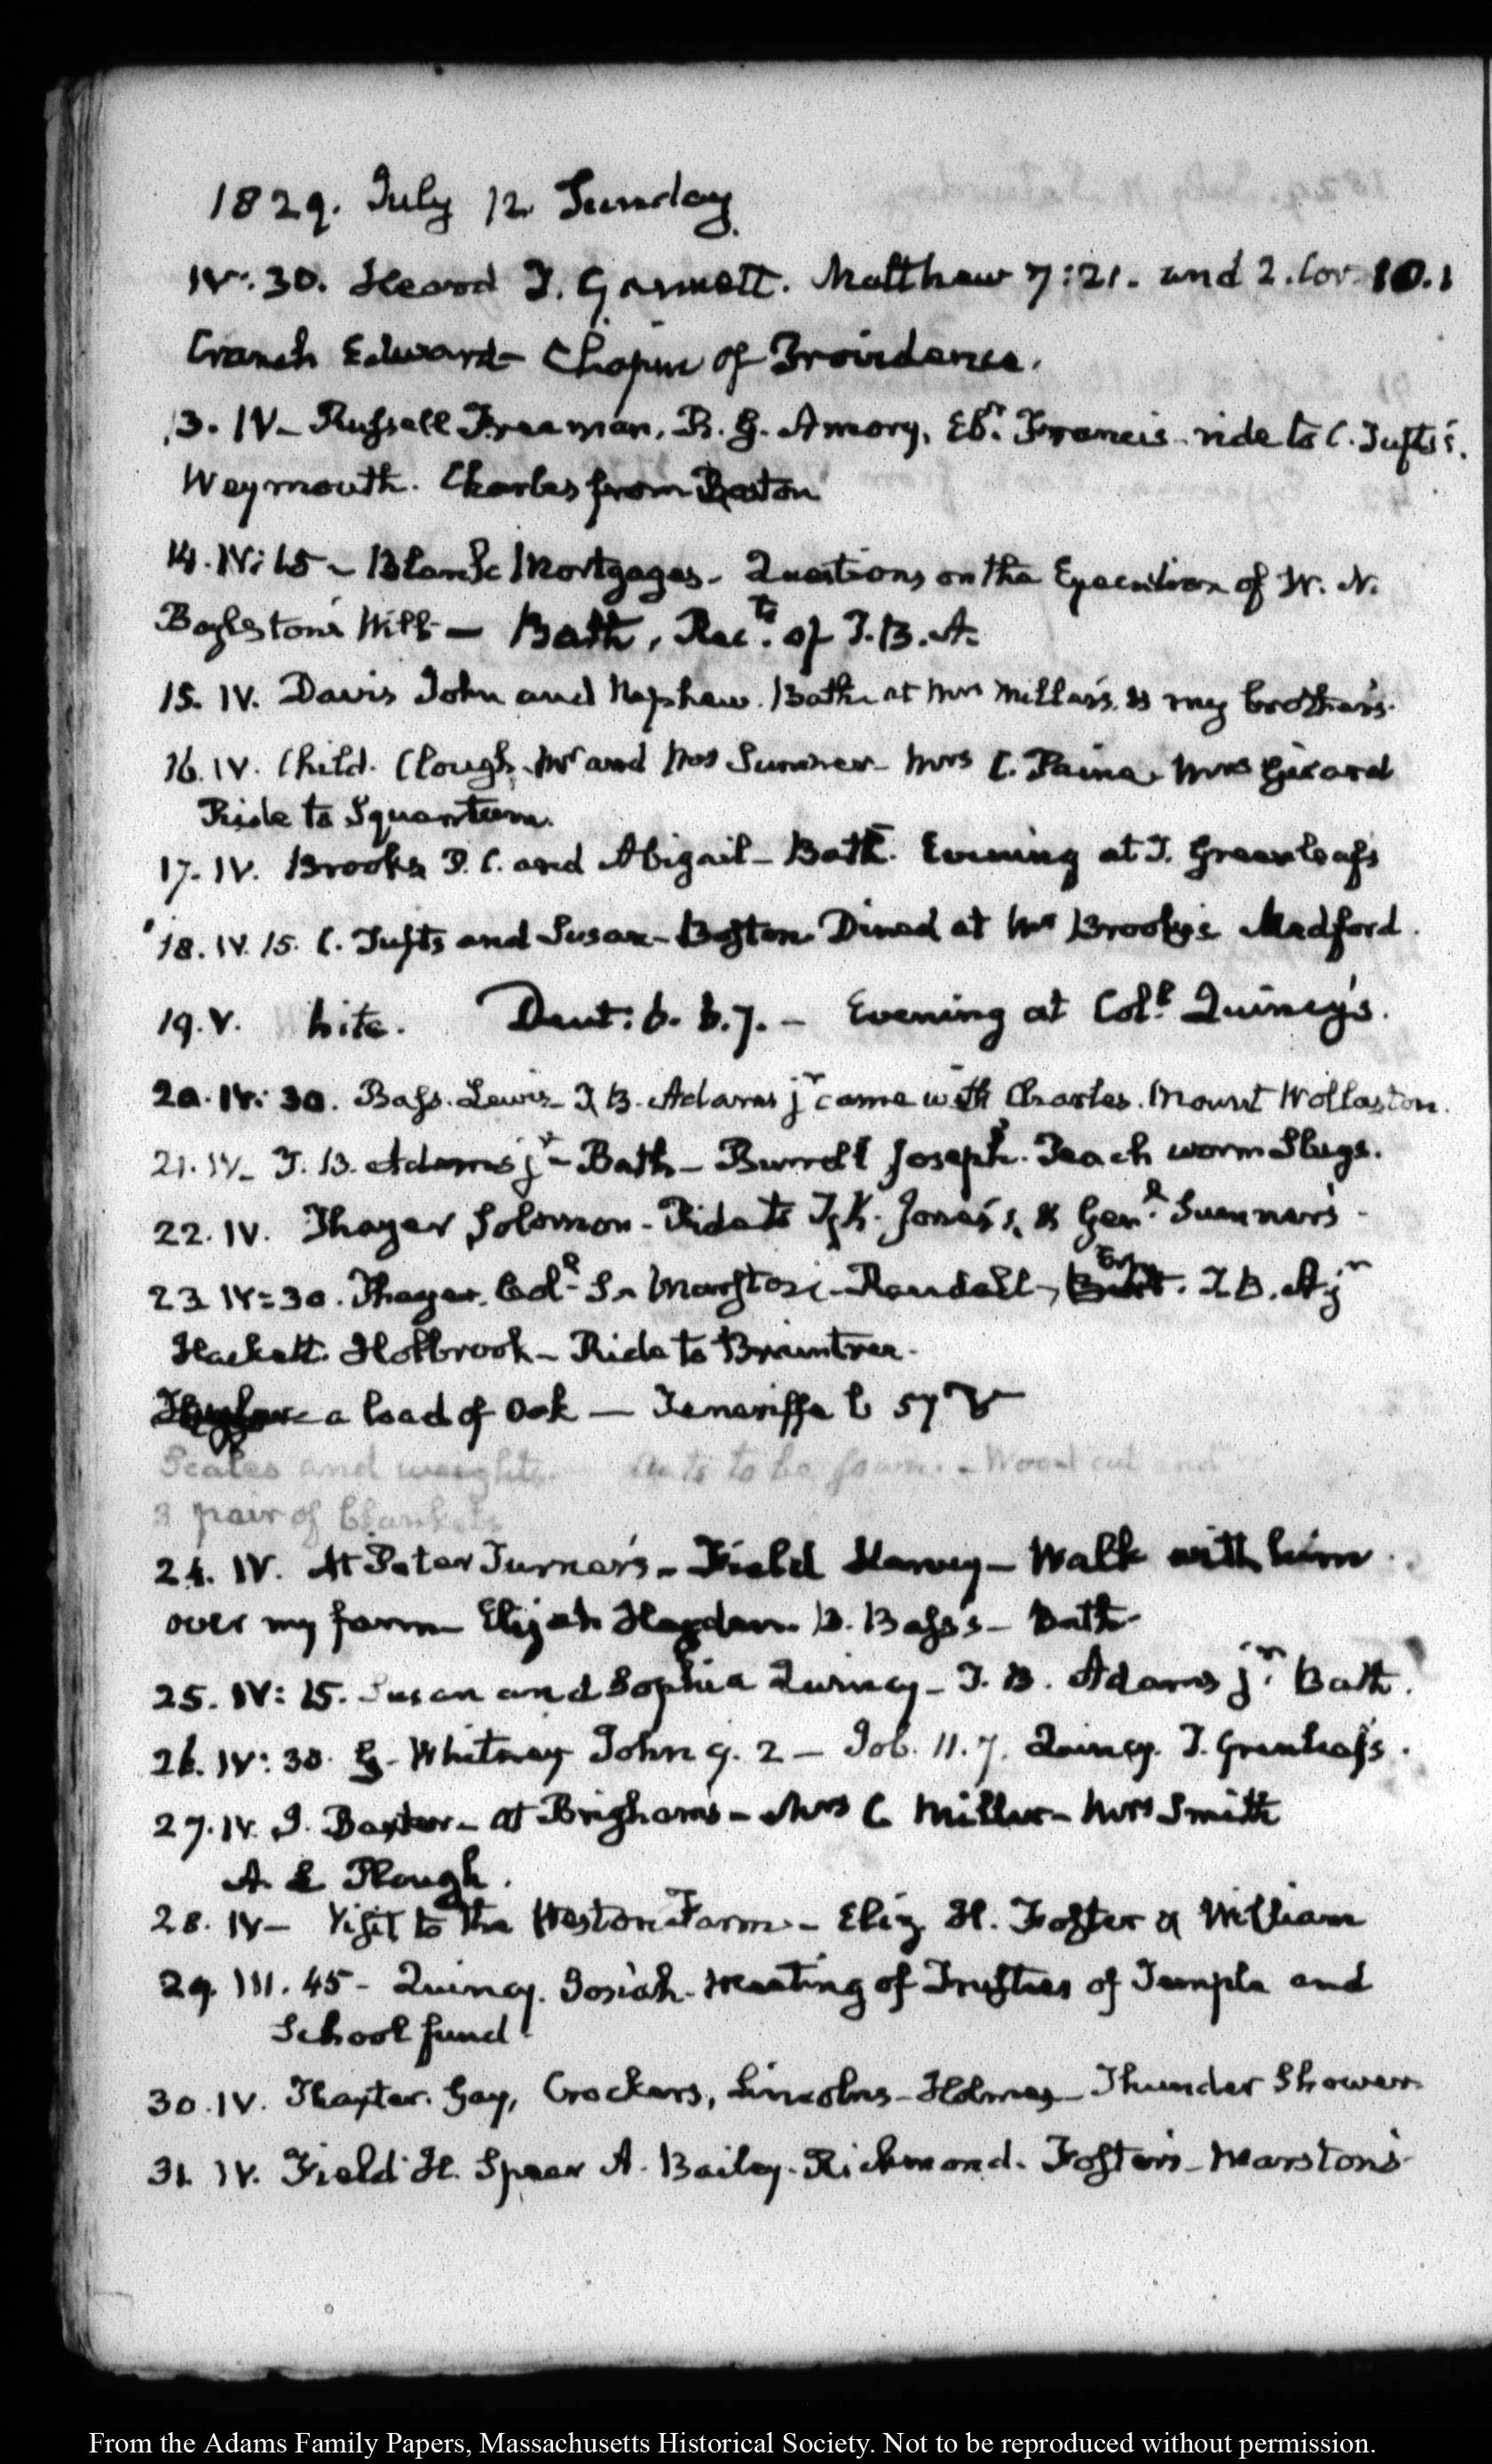 1829. July 12. Sunday.
IV:30. Heard T. Gannett. Matthew 7:21. and 2. Cor. 10.1
Cranch Edward – Chapin of Providence.
13. IV – Russell Freeman, R. G. Amory, Eb.r Francis – ride to C. Tufts's.
Weymouth. Charles from Boston
14. IV:15 – Blank Mortgages – Questions on the Execution of W. N.
Boylston's Will – Bath, Rec.ts of T.B.A.
15. IV. Davis John and Nephew. Bath at Mrs Miller's. & my brother's.
16. IV. Child. Clough. Mr and Mrs Sumner – Mrs C. Paine. Mrs Girard
Ride to Squantum.
17. IV. Brooks P. C. and Abigail – Bath. Evening at T. Greenleaf's
18. IV. 15. C. Tufts and Susan – Boston. Dined at Mr Brooks's Medford.
19. V. Deut: 6. 6.7. – Evening at Col.l Quincy's.
20. IV: 30. Bass. Lewis – T. B. Adams jr came with Charles. Mount Wollaston.
21. IV – T. B. Adams jr – Bath – Burrell Joseph. Peach worm Slugs.
22. IV. Thayer Solomon – Ride to Jones's, & Gen.l Sumner's –
23 IV:30. Thayer. Col.l S. – Marston – Randall – T. B. A jr
Hackett. Holbrook – Ride to Braintree.
a load of Oak – Teneriffe 57
Scales and weights. to be – Wood cut and
3 pair of blankets
24. IV. At Peter Turner's – Field Harvey – Walk with him
over my farm – Elijah Hayden. B. Bass's – Bath –
25. IV: 15. Susan and Sophia Quincy – T. B. Adams jr. Bath.
26. IV: 30. G. Whitney John 9. 2 – Job. 11. 7. Quincy. T. Greenleaf's.
27. IV. J. Baxter – at Brigham's – Mrs C Miller – Mrs Smith
A & Plough.
28. IV – Visit to the Weston Farm – Eliz. H. Foster & William
29. III. 45 – Quincy. Josiah – Meeting of Trustees of Temple and
School fund
30. IV. Thaxter. Gay, Crockers, Lincolns – Holmes – Thunder Shower
31. IV. Field H. Spear A. Bailey – Richmond. Foster's – Marston's
From the Adams Family Papers, Massachusetts Historical Society. Not to be reproduced without permission.